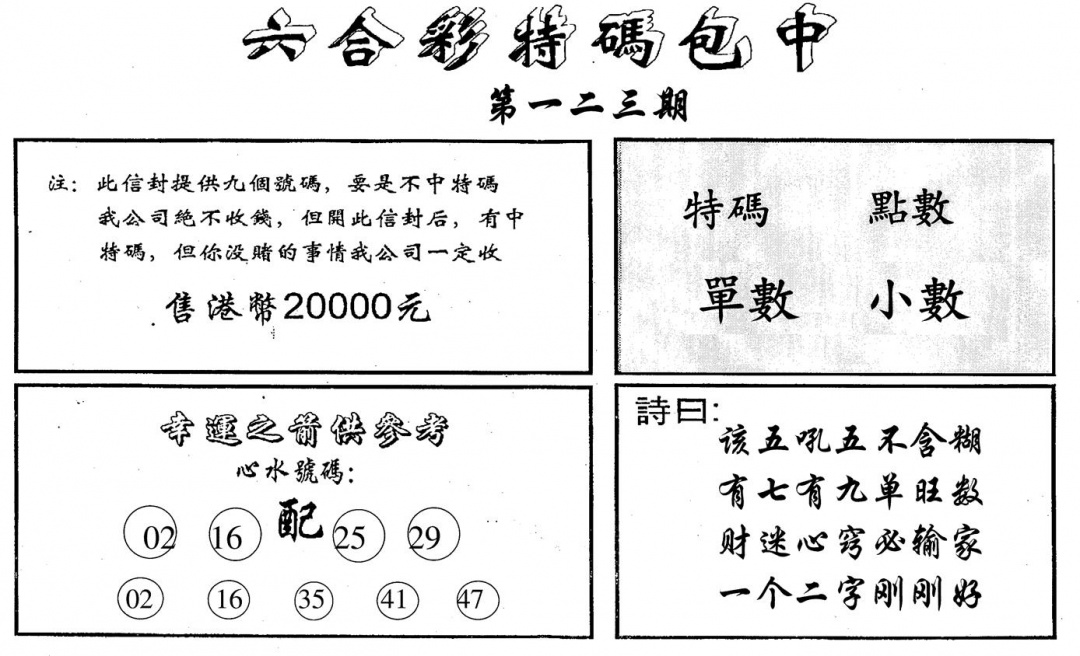 六合彩特碼包中
第一二三期
注：此信封提供九個號碼，要是不中特碼
我公司絕不收錢，但開此信封后，有中
特碼，但你没賭的事情我公司一定收
售港幣20000元
特碼 點數
單數 小數
幸運之箭供參考
心水號碼：
02 16 配 25 29
02 16 35 41 47
詩曰：
该五吼五不含糊
有七有九单旺数
财迷心窍必输家
一个二字刚刚好